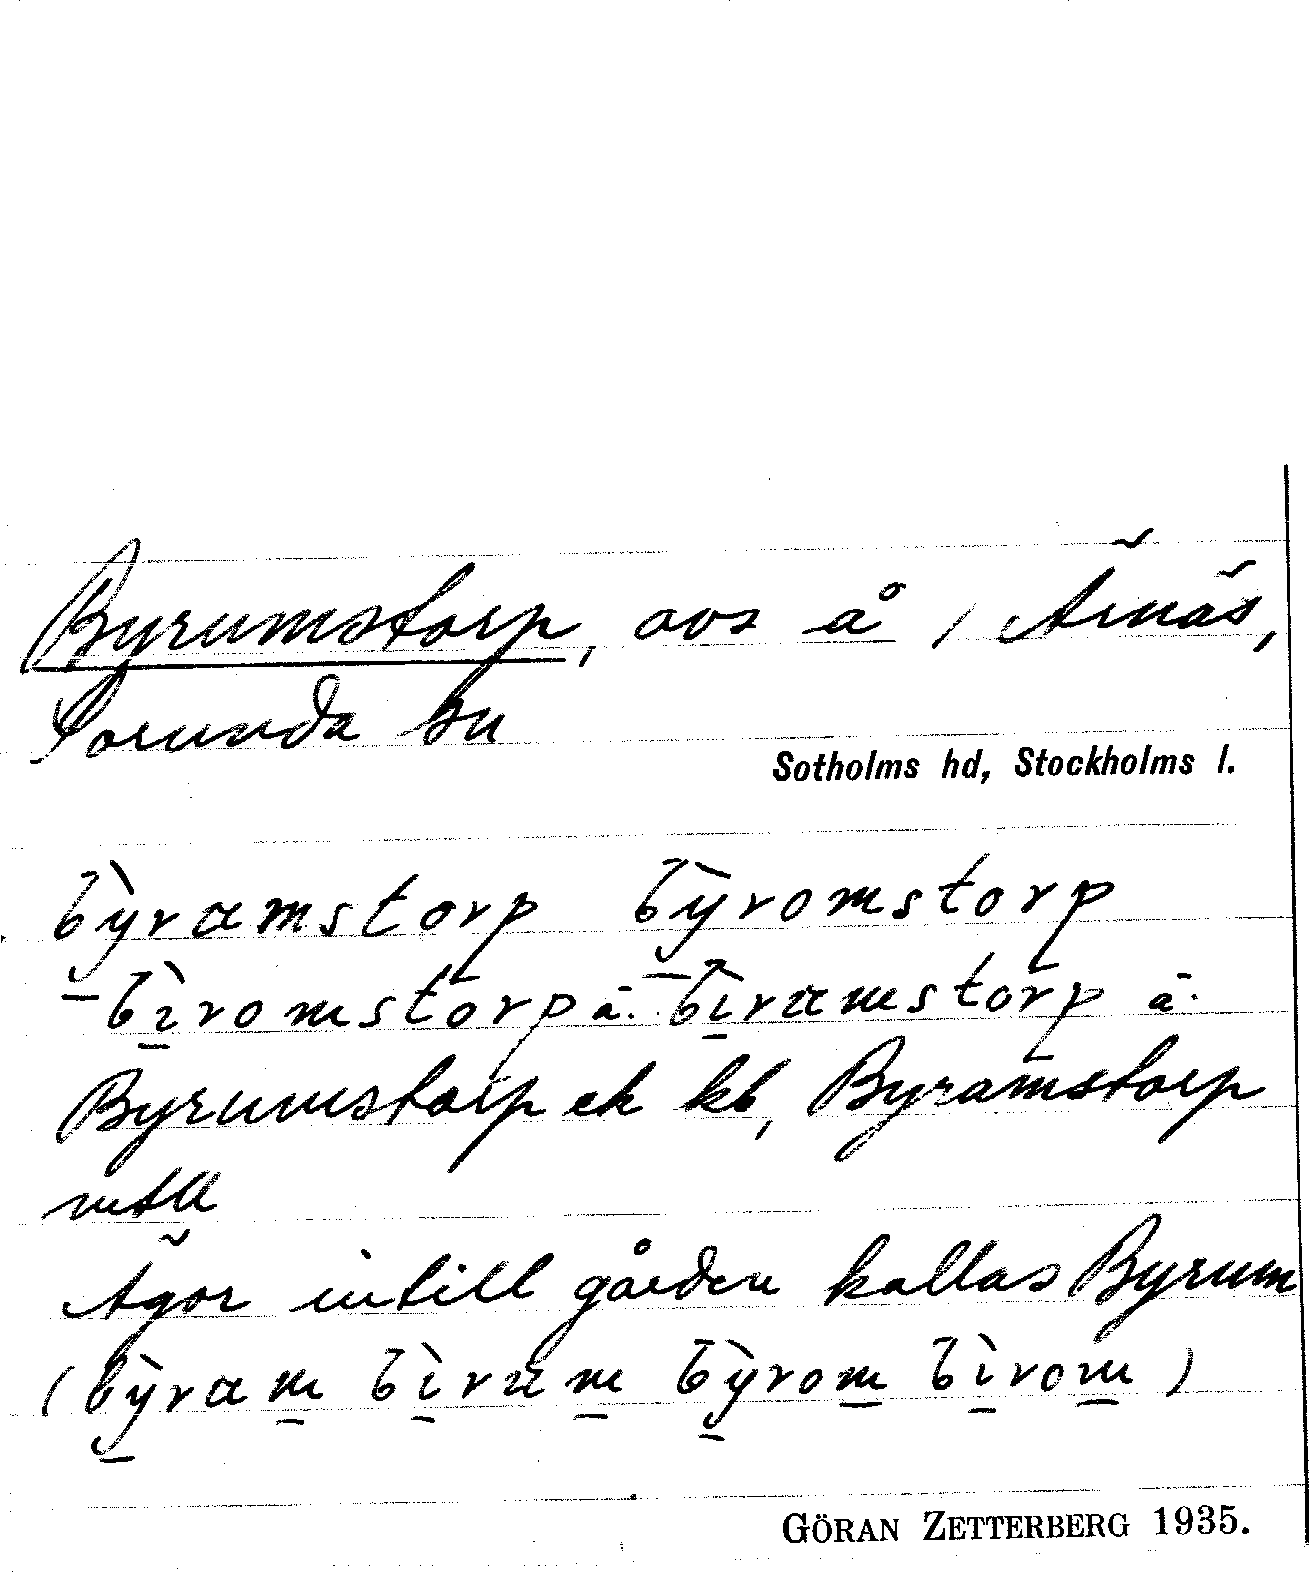 Byrumstorp, avs å / Ärnäs,
Sorunda sn
Sotholms hd, Stockholms l.
bỳramstorp bỳromstorp
bìromstorp ä. bìramstorp ä.
Byrumstorp ek kb, Byramstorp
mtll
Ägor intill gården kallas Byrum
(bỳram bìram bỳrom bìrom)
GÖRAN ZETTERBERG 1935.